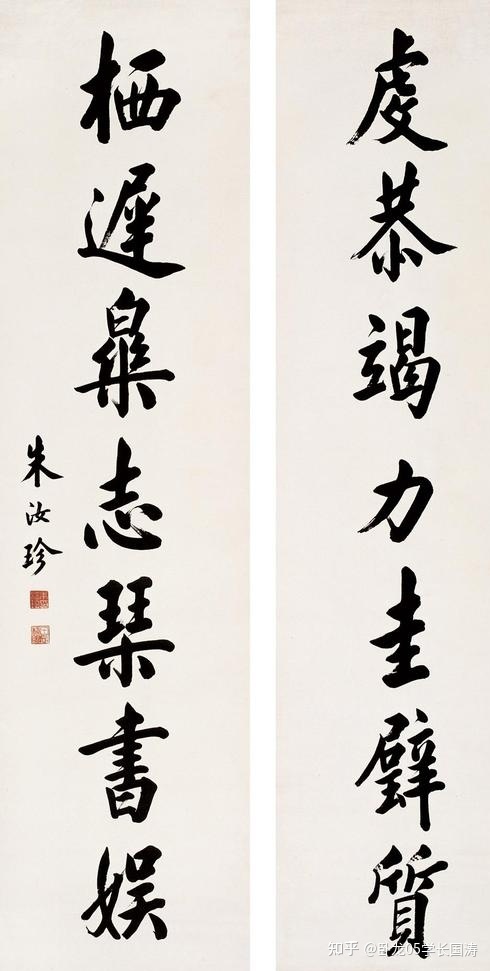 虔恭竭力圭璧質
栖遲臯志琹書娛
朱汝珍
知乎 @卧龙05学长国涛